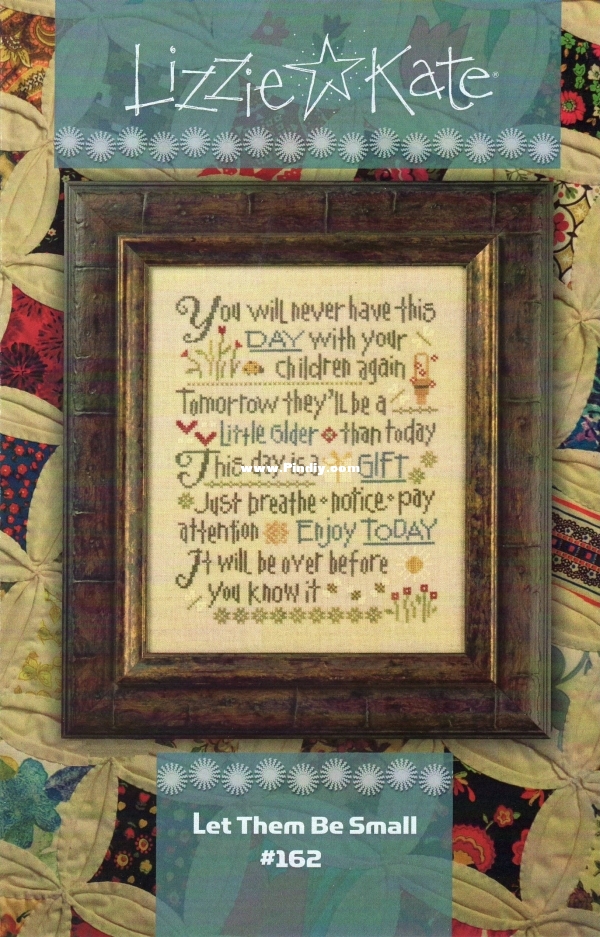 Lizzie Kate®
You will never have this
DAY with your
children again
Tomorrow they'll be a
Little Older than today
This day is a GIFT
www.Pindiy.com
Just breathe • notice • pay
attention Enjoy TODAY
It will be over before
you know it
Let Them Be Small
#162